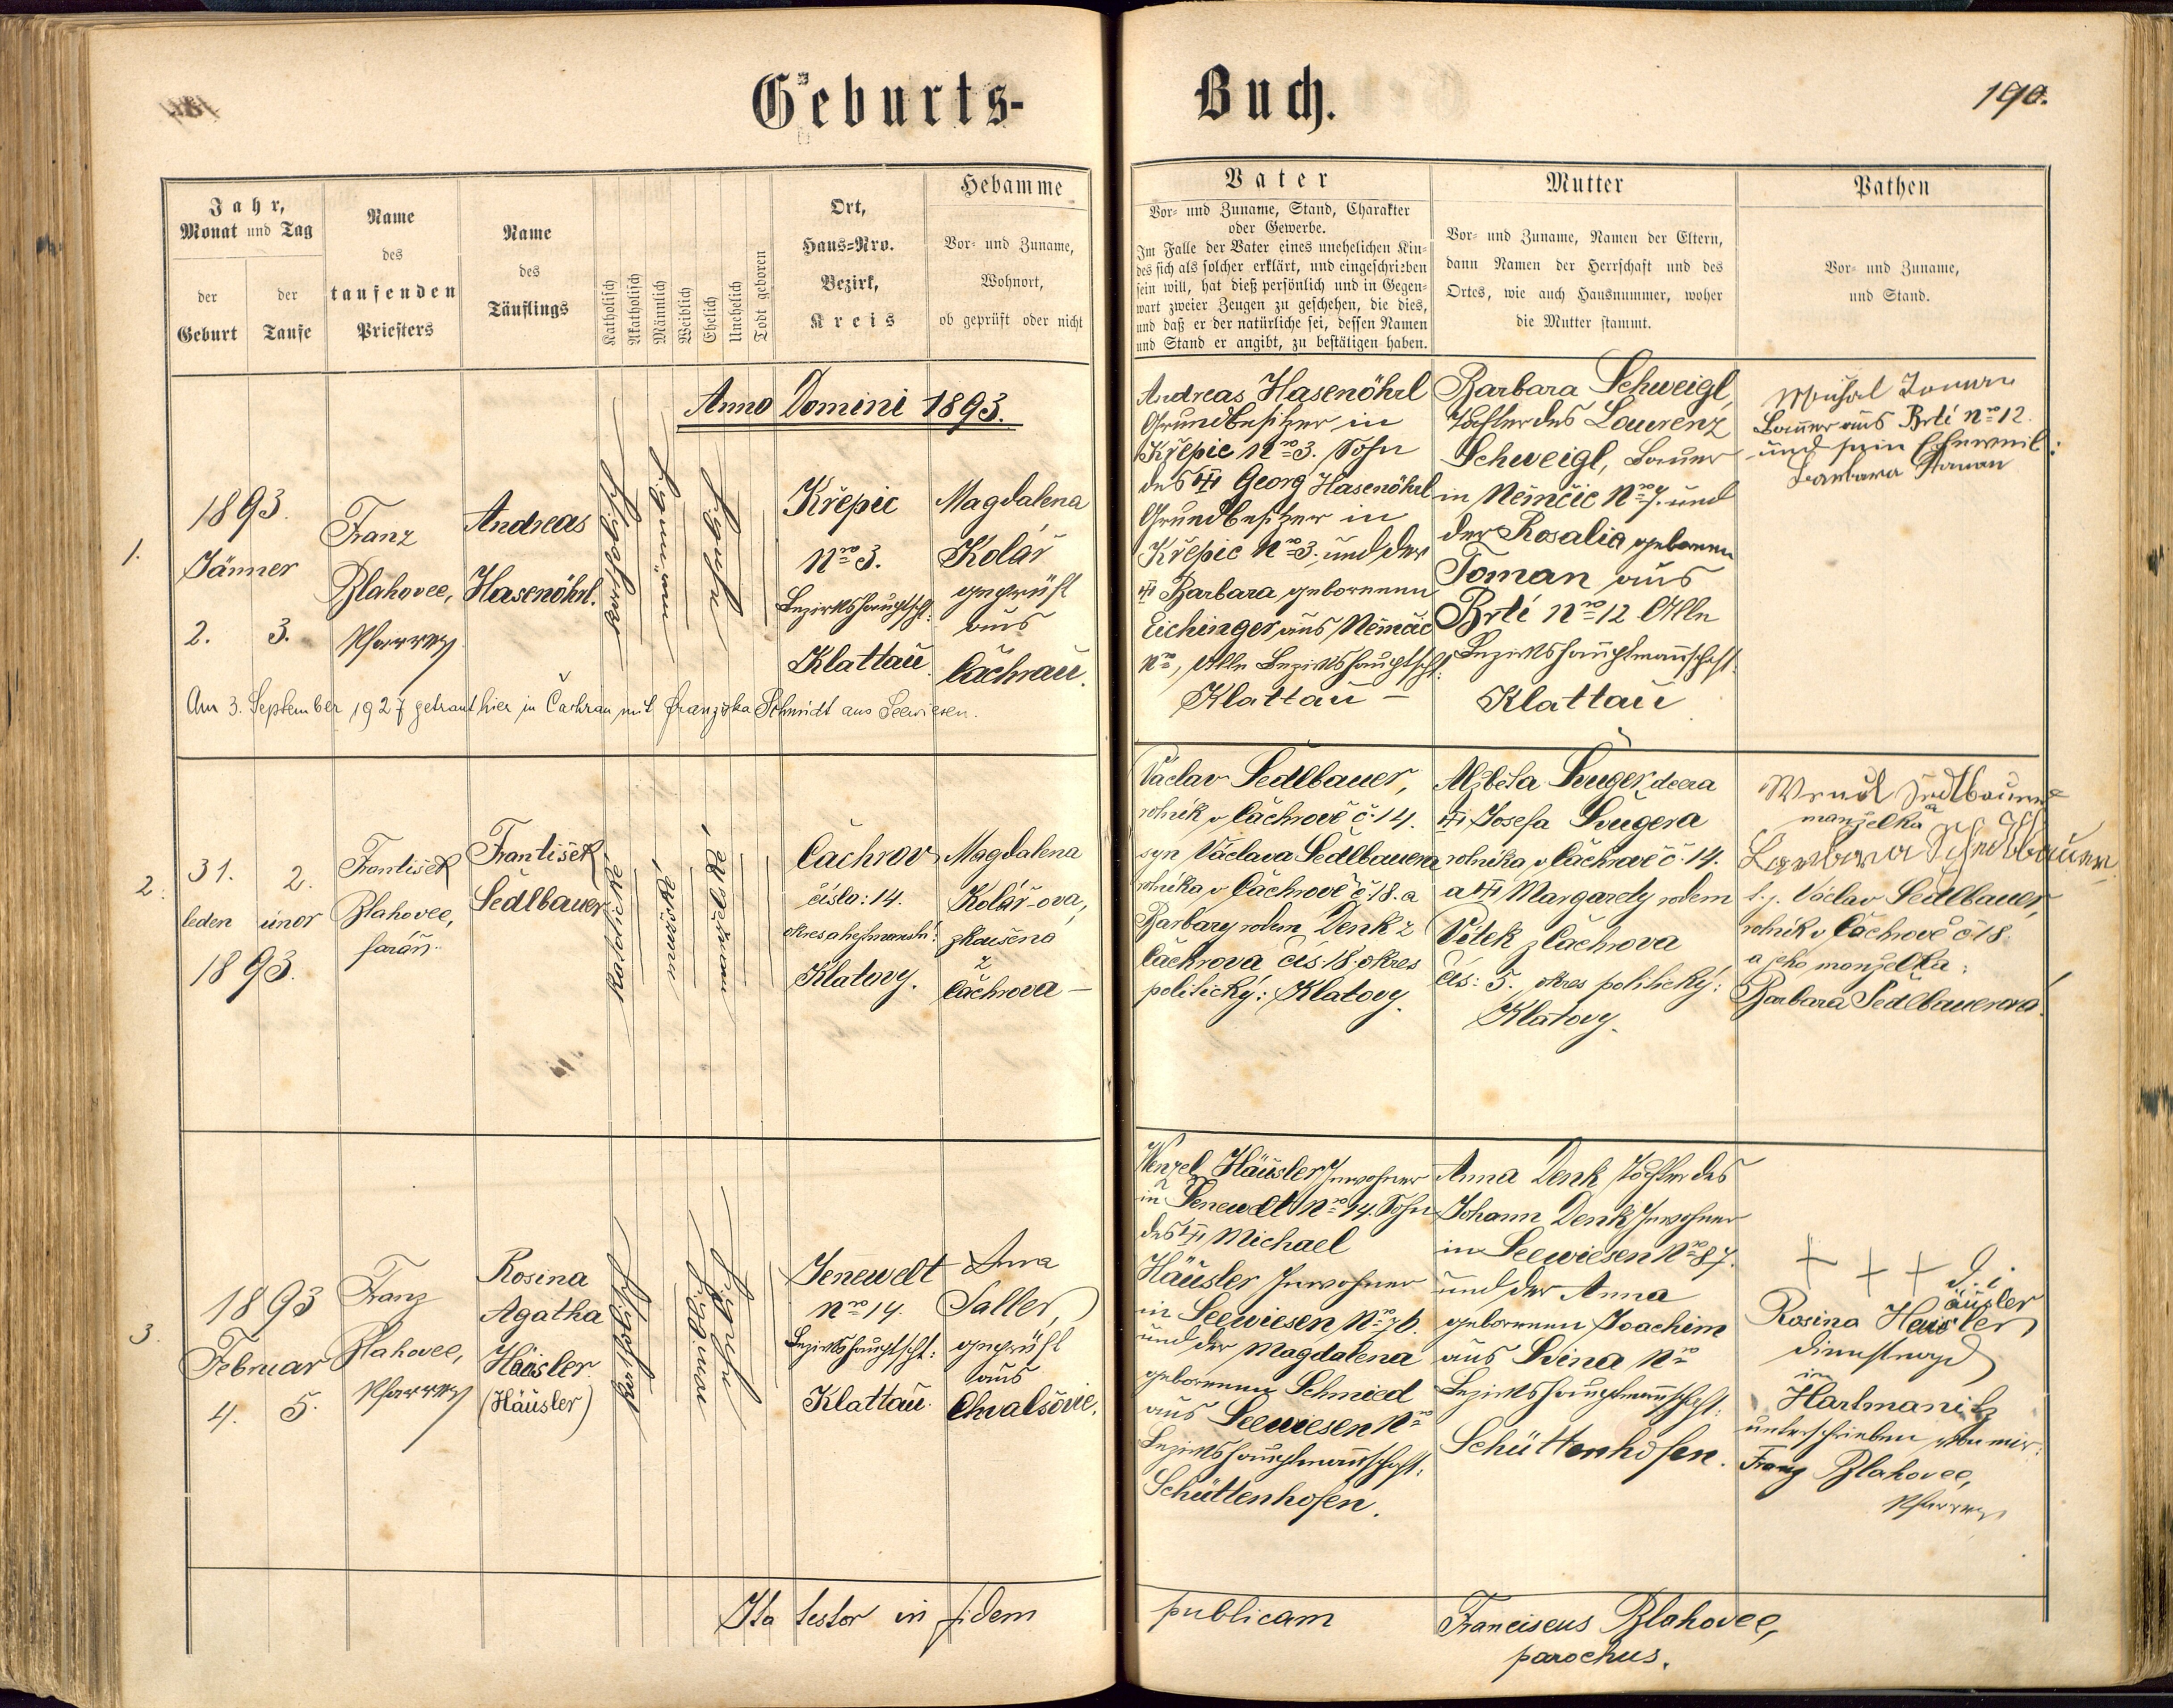 Geburts-
Buch.
190.
Jahr,
Monat und Tag
der
Geburt
der
Taufe
Name
des
taufenden
Priesters
Name
des
Täuflings
Katholisch
Akatholisch
Männlich
Weiblich
Ehelich
Unehelich
Todt geboren
Ort,
Haus-Nro.
Bezirk,
Kreis
Hebamme
Vor- und Zuname,
Wohnort,
ob geprüft oder nicht
Vater
Vor- und Zuname, Stand, Charakter
oder Gewerbe.
Im Falle der Vater eines unehelichen Kin-
des sich als solcher erklärt, und eingeschrieben
sein will, hat dieß persönlich und in Gegen-
wart zweier Zeugen zu geschehen, die dies,
und daß er der natürliche sei, dessen Namen
und Stand er angibt, zu bestätigen haben.
Mutter
Vor- und Zuname, Namen der Eltern,
dann Namen der Herrschaft und des
Ortes, wie auch Hausnummer, woher
die Mutter stammt.
Pathen
Vor- und Zuname,
und Stand.
Anno Domini 1893.
1.
1893.
Jänner
2. 3.
Franz
Blahovec,
Pfarrer
Andreas
Hasenöhrl.
Křepic
Nro 3.
Bezirkshauptsch:
Klattau.
Magdalena
Kolář
geprüft
aus
Čachrau.
Andreas Hasenöhrl
Grundbesitzer in
Křepic Nro 3. Sohn
des Georg Hasenöhrl
Grundbesitzer in
Křepic Nro 3. und der
Barbara geborenen
Eichinger aus Němčic
Nro, Alle Bezirkshauptsch:
Klattau –
Barbara Schweigl,
Tochter des Laurenz
Schweigl, Bauer
in Němčic Nro 7. und
der Rosalia geborenen
Toman aus
Brtí Nro 12 Alle
Bezirkshauptmannschaft
Klattau
Michal Toman
Bauer aus Brtí Nro 12.
und sein Eheweib:
Barbara Toman
Am 3. September 1927 getraut hier in Čachrau mit Franziska Schmidt aus Seewiesen.
2.
31. 2.
leden únor
1893.
František
Blahovec,
farář.
František
Sedlbauer
Katolické
Čachrov
číslo: 14.
okres a hejtmanství:
Klatovy.
Magdalena
Kolář-ova,
zkoušená
z
Čachrova –
Václav Sedlbauer,
rolník v Čachrově č. 14.
syn Václava Sedlbauera
rolníka v Čachrově č. 18. a
Barbary rodem Denk z
Čachrova čís. 18. okres
politický: Klatovy.
Alžběta Šuger, dcera
Josefa Šugera
rolníka v Čachrově č. 14.
a Margarety rodem
Vítek z Čachrova
čís: 5. okres politický:
Klatovy.
manželka
t. j. Václav Sedlbauer,
rolník v Čachrově č. 18.
a jeho manželka:
Barbara Sedlbauerova.
3.
1893
Februar
4. 5.
Franz
Blahovec,
Pfarrer
Rosina
Agatha
Häusler
(Häusler)
Jenewelt
Nro 14.
Bezirkshauptscht:
Klattau.
Anna
Saller,
geprüft
aus
Chvalšovic.
Wenzel Häusler Inwohner
in Jenewelt Nro 14. Sohn
des Michael
Häusler Inwohner
in Seewiesen Nro 76.
und der Magdalena
geborenen Schmied
aus Seewiesen Nro
Bezirkshauptmannschaft:
Schüttenhofen.
Anna Denk Tochter des
Johann Denk Inwohner
in Seewiesen Nro 87.
und der Anna
geborenen Joachim
aus Nro
Bezirkshauptmannschaft:
Schüttenhofen.
+ + + d. i.
Rosina Häusler
Dienstmagd
in
Hartmanitz
unterschrieben von mir:
Franz Blahovec,
Pfarrer
Ita testor in fidem
publicam
Franciscus Blahovec,
parochus.